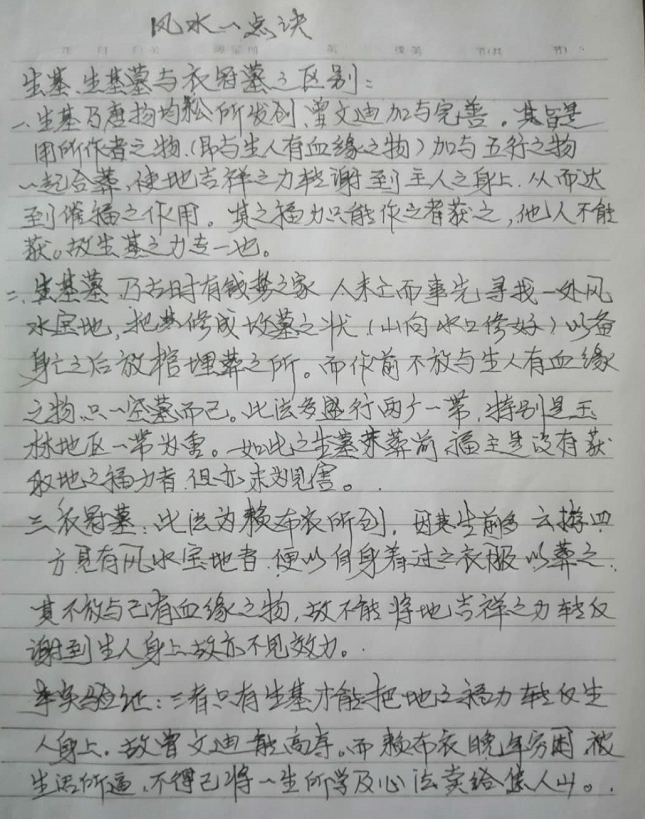 风水一点诀
生基、生基墓与衣冠墓之区别：
一、生基乃唐杨均松所发创、曾文迪加与完善。其旨是
用所作者之物、(即与生人有血缘之物)加与五行之物
一起合葬，使地吉祥之力转谢到主人之身上、从而达
到催福之作用。其之福力只能作之者获之，他人不能
获。故生基之力专一也。
二、生基墓 乃古时有钱势之家 人未亡而事先寻找一处风
水宝地，把其修成坟墓之状(山向水口修好)以备
身亡之后放棺埋葬之所。而作前不放与生人有血缘
之物、只一空墓而已。此法多盛行两广一带，特别是玉
林地区一带为害。如此之生墓未葬前，福主是没有获
取地之福力者、但亦未为见害。
三、衣冠墓：此法为赖布衣所创，因其生前多云游四
方见有风水宝地者、便以自身着过之衣服以葬之、
其不放与己有血缘之物，故不能将地吉祥之力转反
谢到生人身上故亦不见效力。
事实验证：三者只有生基才能把地之福力转反生
人身上，故曾文迪能高寿。而赖布衣晚年穷困、被
生活所逼、不得已将一生所学及心法卖给焦人山。